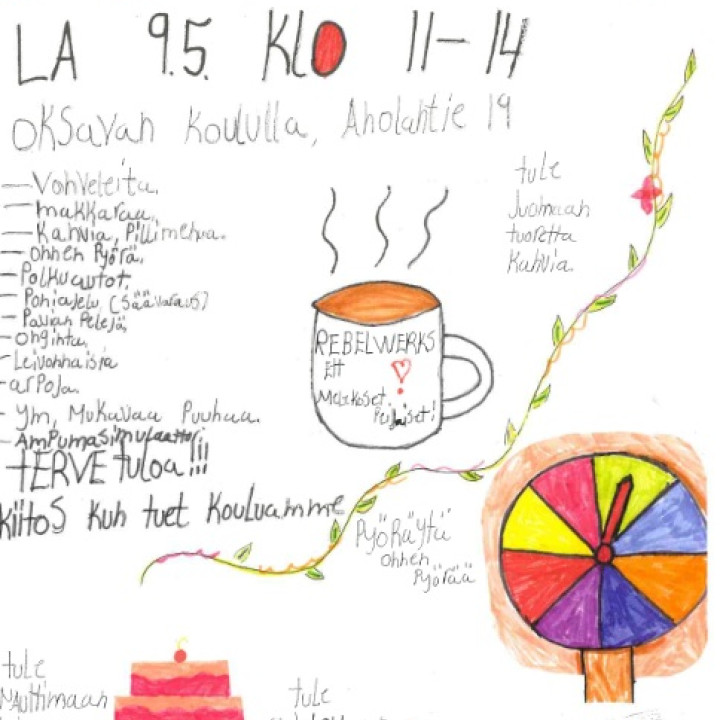 LA 9.5. KLO 11-14
OKSAVAN KOULULLA, Aholahtie 19
-Vohveleita.
-makkaraa.
-Kahvia, Pillimehua.
-ohnen Pyörä.
-Polkuautot.
-Poniajelu (säävaraus)
-Paljan Pelejä
-onginta.
-Leivonnaisia
-arpoja.
-ym, Mukavaa Puuhaa.
-Ampumasimulaattori
tERVEtuloa!!!
kiitos kun tuet kouluamme
tule
Juomaan
tuoretta
Kahvia.
REBELWERKS
Ett
Matkoset.
PYÖRÄYtÄ
ohnen
Pyörää
tule
NAUttimaan
tule